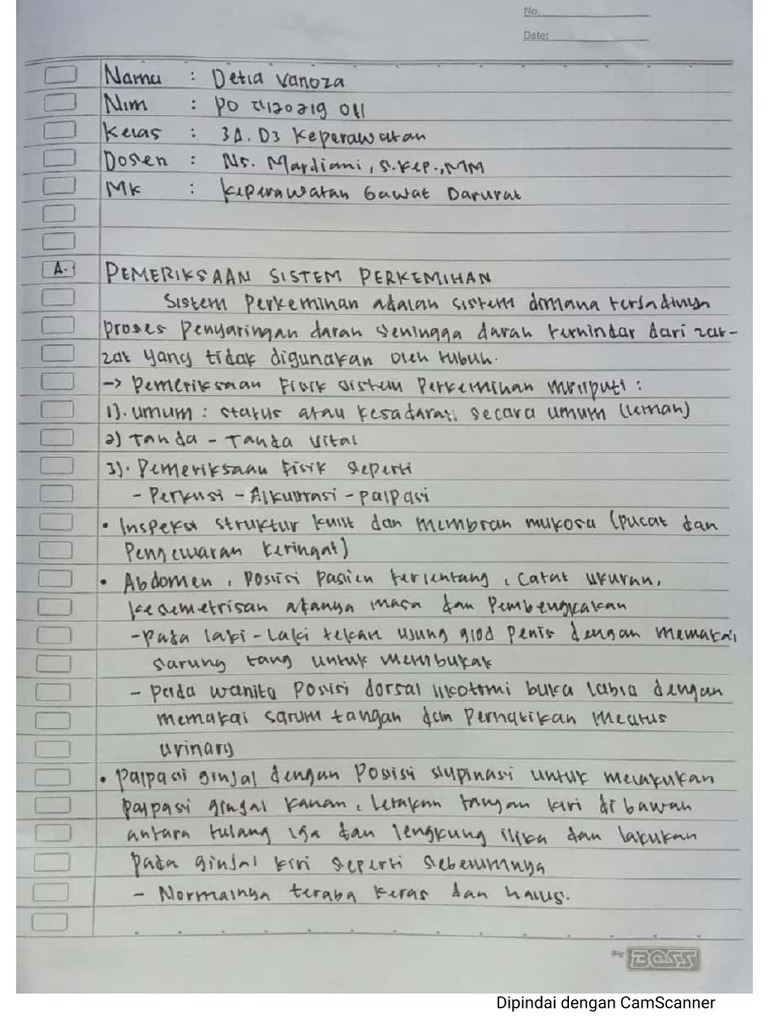 No.
Date:
Nama : Detia Vanoza
Nim : PO 7120219 011
Kelas : 3A. D3 Keperawatan
Dosen : Ns. Mardiani, S.Kep.,MM
MK : Keperawatan Gawat Darurat
A. PEMERIKSAAN SISTEM PERKEMIHAN
Sistem Perkemihan adalah sistem dimana terjadinya
proses Penyaringan darah sehingga darah terhindar dari zat-
zat yang tidak digunakan oleh tubuh.
-> Pemeriksaan Fisik sistem Perkemihan meliputi :
1). umum : status atau kesadaran secara umum (lemah)
2) Tanda - Tanda Vital
3). Pemeriksaan Fisik seperti
- Perkusi - - palpasi
• Inspeksi struktur kulit dan membran mukosa (pucat dan
Pengeluaran keringat)
• Abdomen, Posisi Pasien terlentang, catat ukuran,
kesemetrisan adanya masa dan Pembengkakan
- pada laki - laki tekan ujung penis dengan memakai
sarung tang untuk membukak
- pada wanita Posisi dorsal buka labia dengan
memakai sarum tangan dan Perhatikan meatus
urinary
• palpasi ginjal dengan Posisi supinasi untuk melakukan
palpasi ginjal kanan, letakan tangan kiri di bawah
antara tulang iga dan lengkung ilika dan lakukan
pada ginjal kiri seperti sebelumnya
- Normalnya teraba keras dan halus.
By BOSS
Dipindai dengan CamScanner